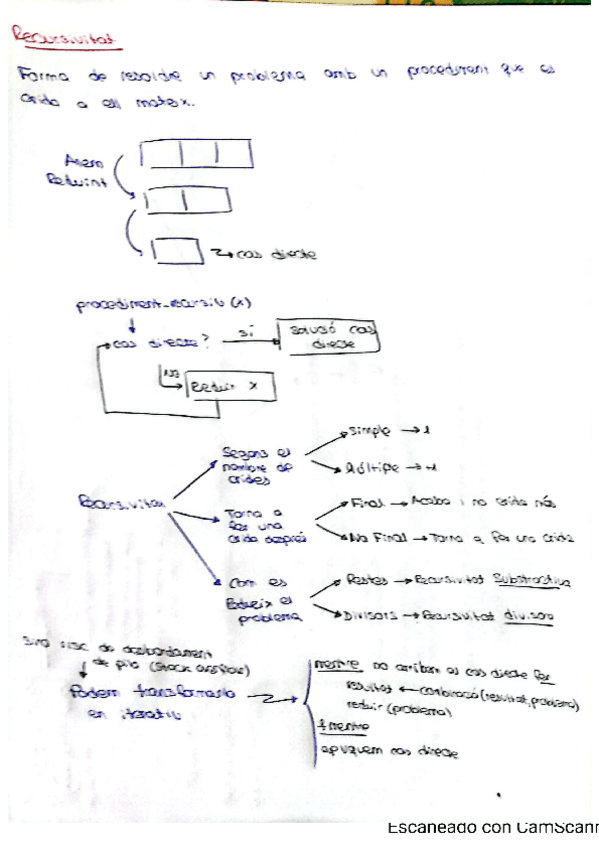 Recursivitat
Forma de resoldre un problema amb un procediment que es
crida a ell mateix.
Anem
Reduint
cas directe
procediment_recursiu (x)
cas directe?
sí
solució cas
directe
No
Reduir x
Recursivitat
Segons el
nombre de
crides
Simple → 1
Múltiple → +1
Torna a
fer una
crida després
Final → Acaba i no crida més
No Final → Torna a fer una crida
Com es
Redueix el
problema
Restes → Recursivitat Substractiva
Divisors → Recursivitat divisora
risc de desbordament
de pila (stack overflow)
Podem transformarlo
en iteratiu
mentre no arribem al cas directe fer
resultat ← combinació (resultat, problema)
reduir (problema)
fmentre
apliquem cas directe
Escaneado con CamScann